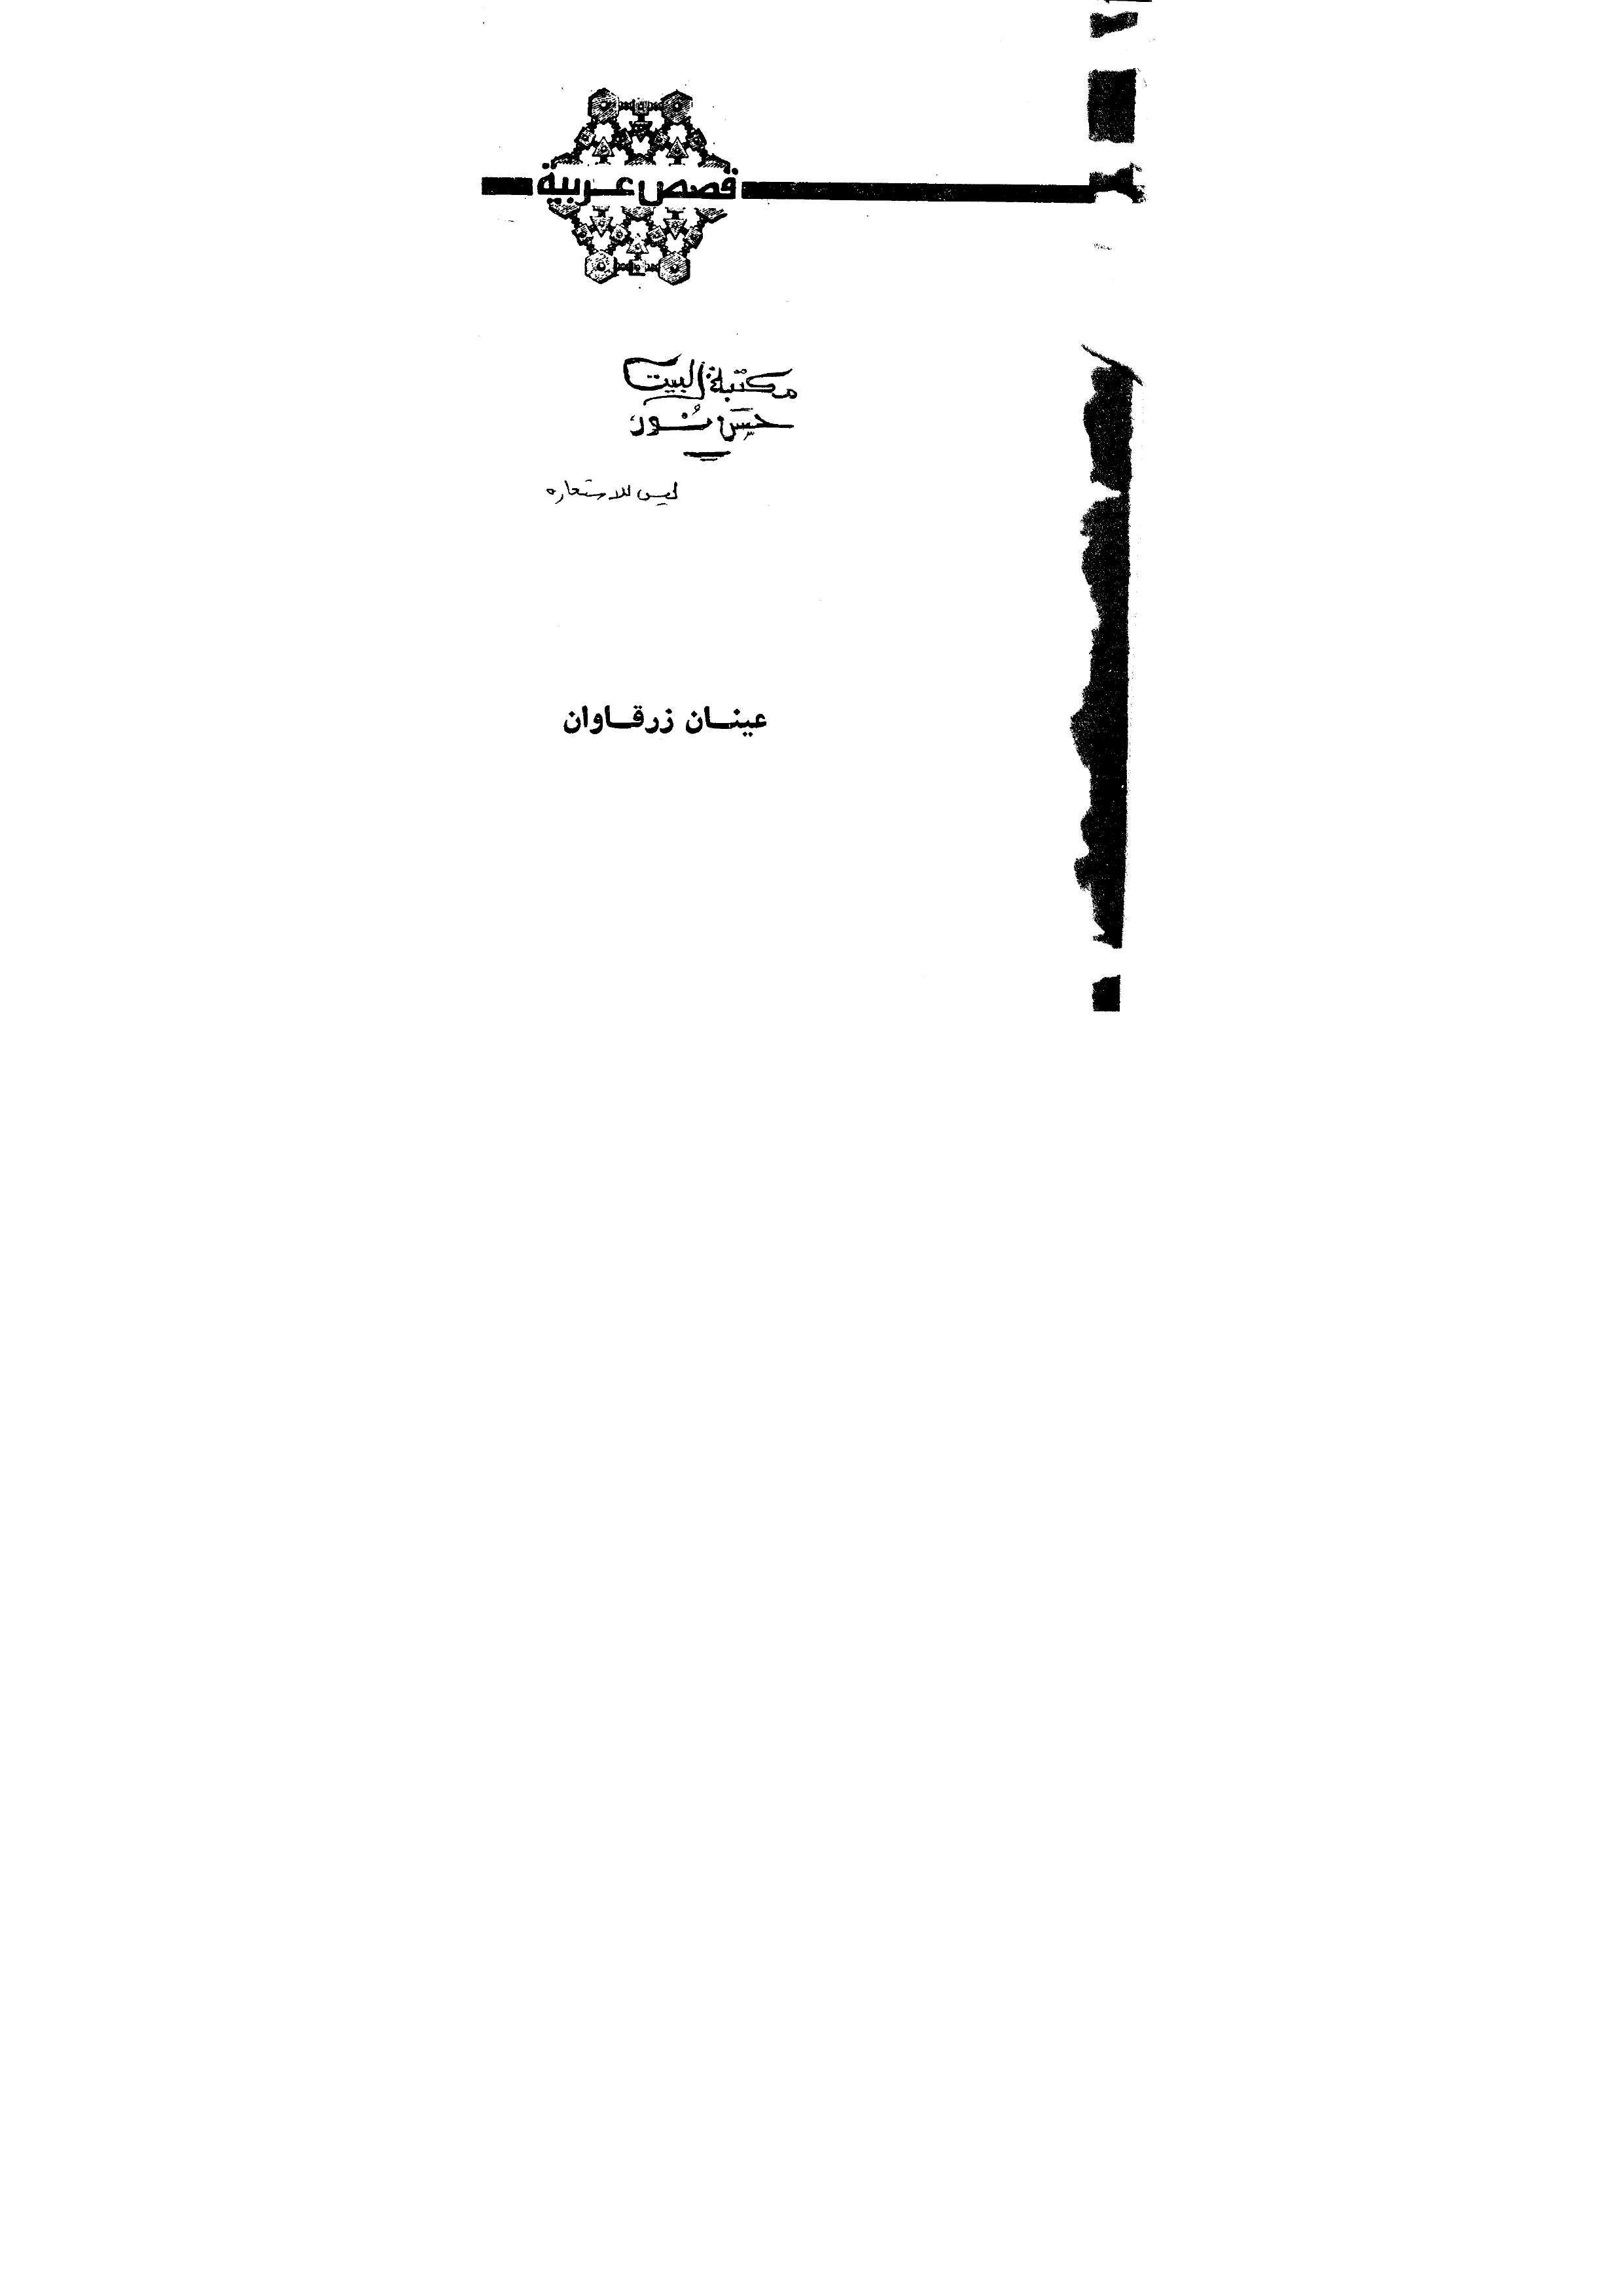 قصص عربية
مكتبة البيت
حسن نور
ليس للاستعاره
عينان زرقاوان